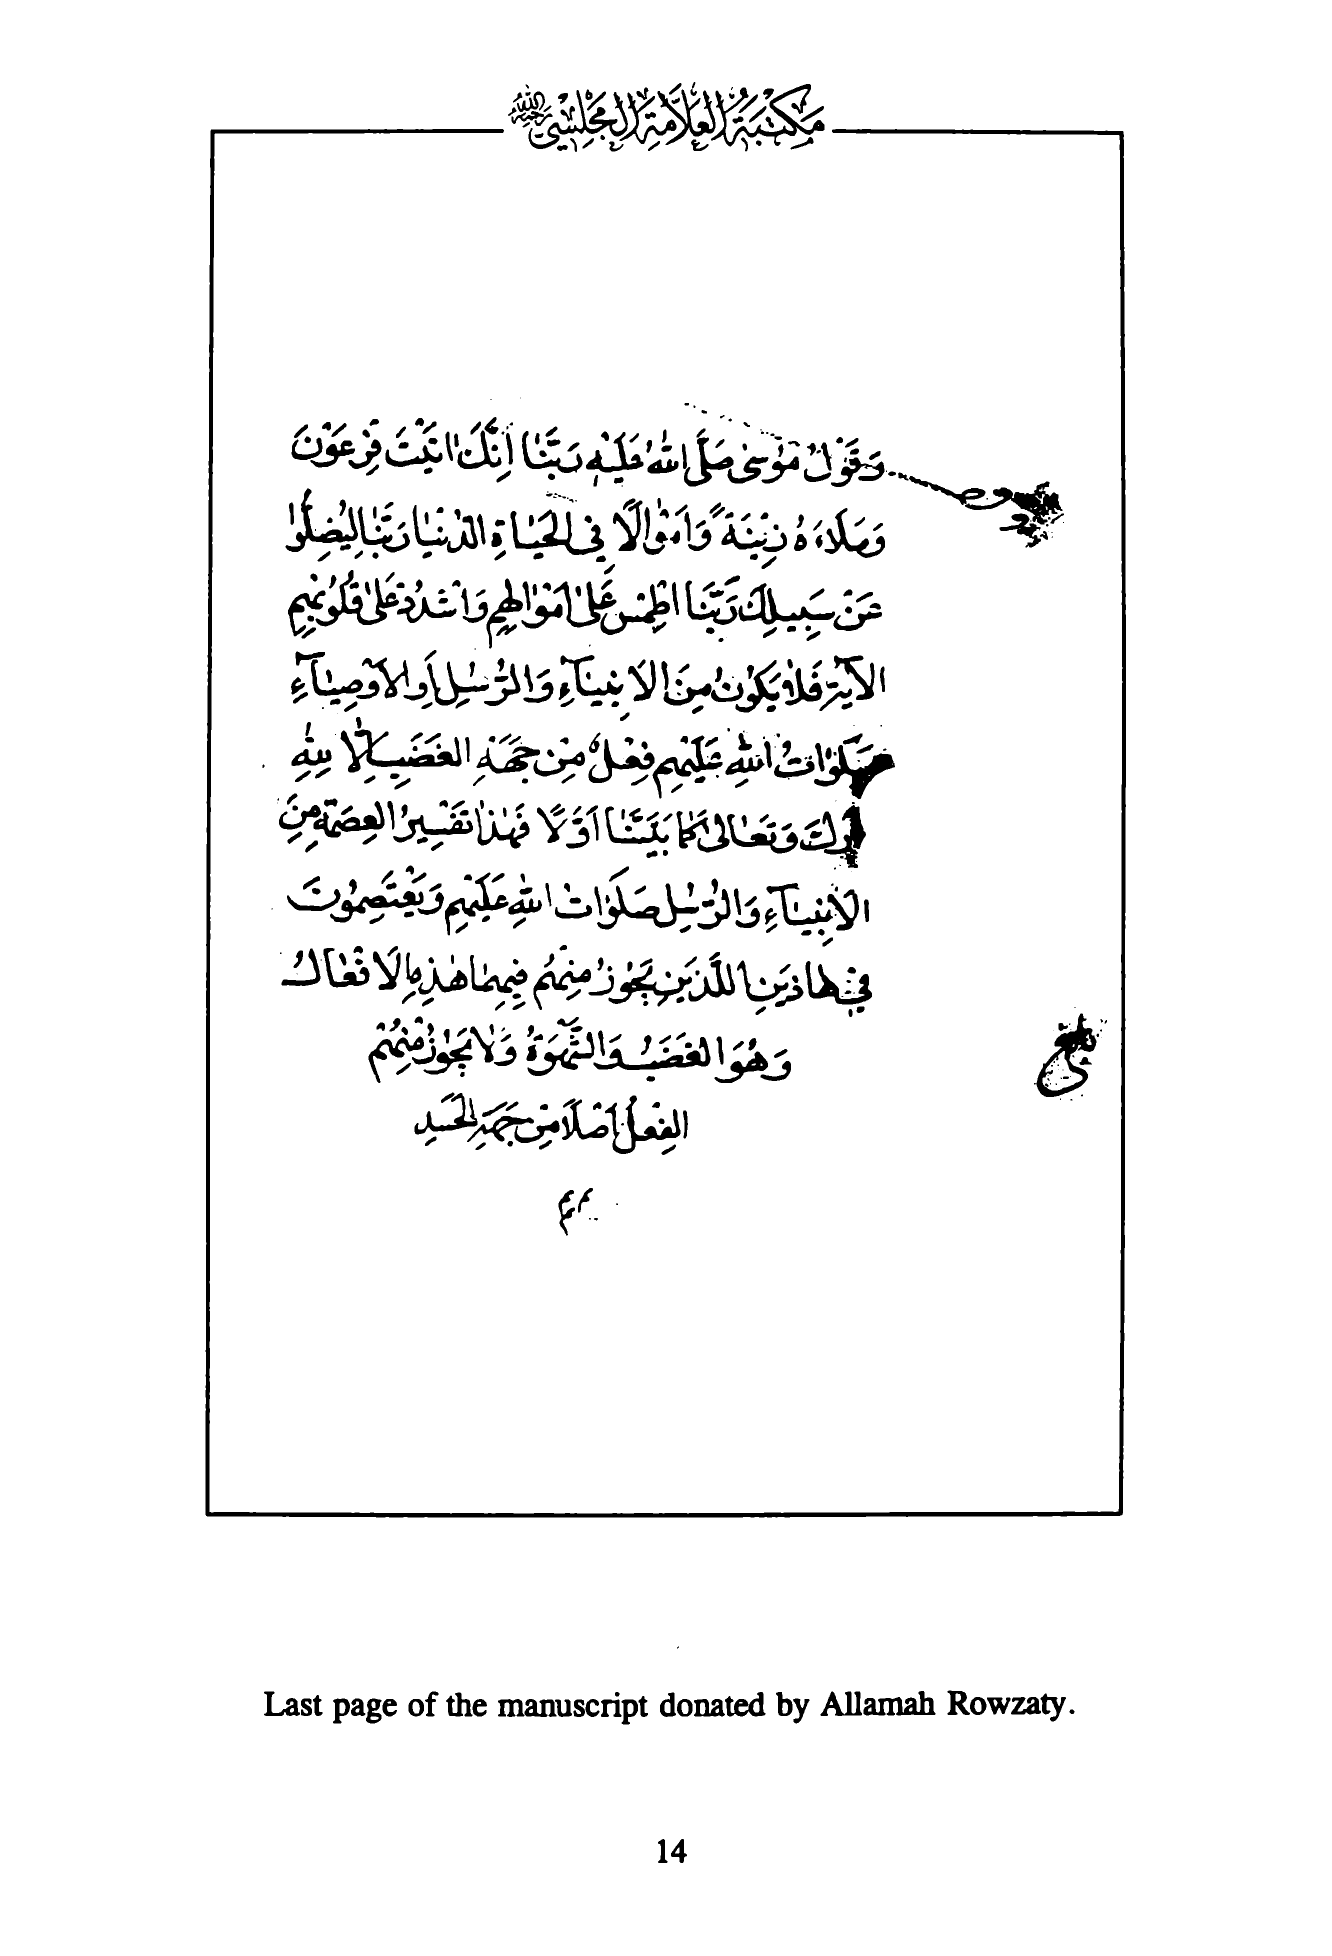 مكتبة العلامة المجلسي رحمه الله
وَقَوْلُ مُوسىٰ صَلَّى اللهُ عَلَيْهِ رَبَّنَا اِنَّكَ اٰتَيْتَ فِرْعَوْنَ
وَمَلَاءَهُ زِينَةً وَاَمْوَالًا فِي الْحَيَاةِ الدُّنْيَا رَبَّنَا لِيُضِلُّوا
عَنْ سَبِيلِكَ رَبَّنَا اطْمِسْ عَلىٰ اَمْوَالِهِمْ وَاشْدُدْ عَلىٰ قُلُوبِهِمْ
الآيَةَ فَلَا يَكُونُ مِنَ الاَنْبِيَآءِ وَالرُّسُلِ وَالاَوْصِيَآءِ
صَلَوَاتُ اللهِ عَلَيْهِمْ فِعْلٌ مِنْ جِهَةِ الْغَضَبِ اِلَّا لِلّٰهِ
ارَكَ وَتَعَالىٰ كَمَا بَيَّنَّا اَوَّلًا فَهٰذَا تَفْسِيرُ الْعِصْمَةِ مِنَ
الاَنْبِيَآءِ وَالرُّسُلِ صَلَوَاتُ اللهِ عَلَيْهِمْ وَيَعْتَصِمُونَ
فِي هَاذَيْنِ اللَّذَيْنِ يَجُوزُ مِنْهُمْ فِيهِمَا هٰذِهِ الاَفْعَالُ
وَهُوَ الْغَضَبُ وَالشَّهْوَةُ وَلَا يَجُوزُ مِنْهُمْ
الْفِعْلُ اَصْلًا مِنْ جِهَةِ الْحَسَدِ
Last page of the manuscript donated by Allamah Rowzaty.
14